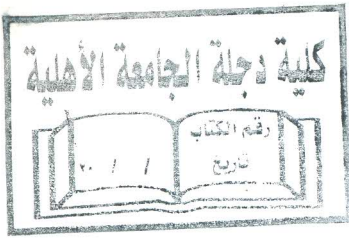 كلية دجلة الجامعة الأهلية
رقم الكتاب
تاريخ
/ / ٢٠